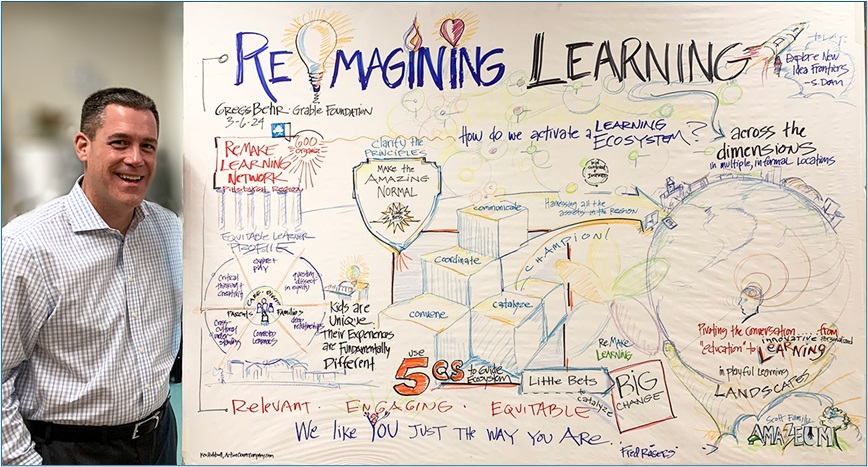 REIMAGINING LEARNING
today:
Explore New
Idea Frontiers
-S. Dorn
GREGG BEHR · Grable Foundation
3-6-24
REMAKE
LEARNING
NETWORK
Pittsburgh Region
600
clarify the
PRINCIPLES
MAKE THE
AMAZING
NORMAL
How do we activate a LEARNING
ECOSYSTEM?
across the
dimensions
in multiple, informal locations
Harnessing all the
assets in the region
CHAMPION!
communicate
coordinate
catalyze
convene
EQUITABLE LEARNER
PROFILE
explore +
play
critical
thinking +
creativity
PARENTS
FAMILIES
deep
relationships
Kids are
Unique.
Their Experiences
are Fundamentally
Different
use
5 QS to Guide
Ecosystem
Little Bets
to catalyze
BIG
CHANGE
ReMake
LEARNING
Pivoting the Conversation.....from
"education" to LEARNING
innovative
in playful learning
LANDSCAPES
RELEVANT · ENGAGING · EQUITABLE
We like YOU JUST THE WAY YOU ARE...
-Fred Rogers
Scott Family
AMAZEUM